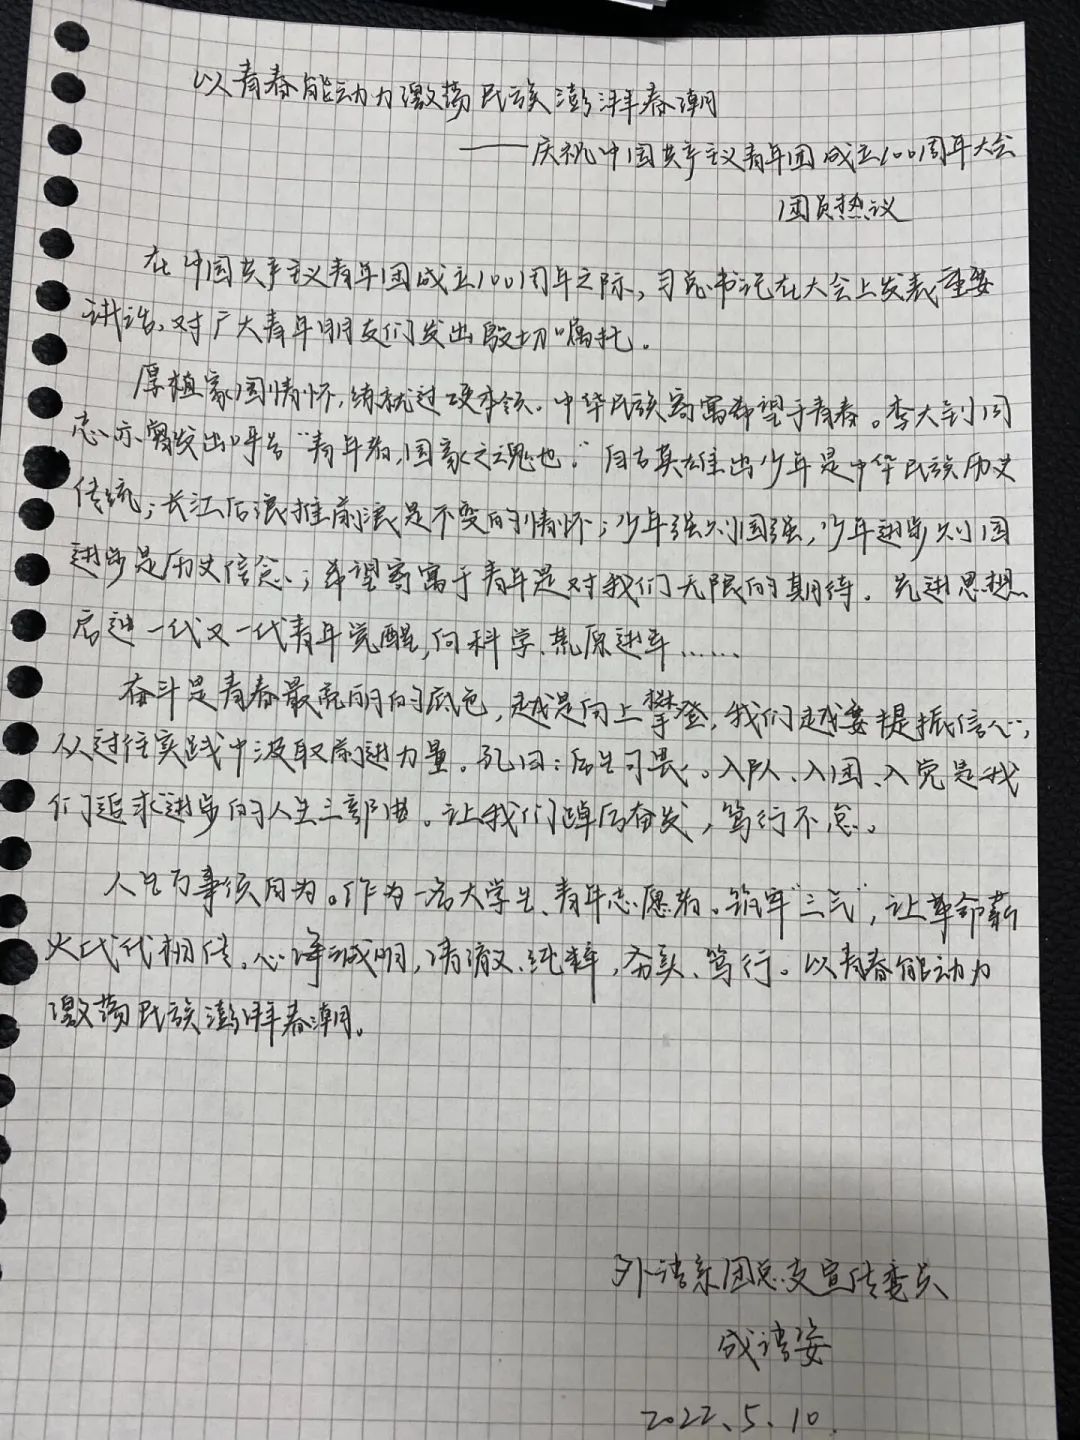 以青春能动力激荡民族澎湃春潮
——庆祝中国共产主义青年团成立100周年大会
团员热议
在中国共产主义青年团成立100周年之际,习总书记在大会上发表重要
讲话,对广大青年朋友们发出殷切嘱托。
厚植家国情怀,练就过硬本领。中华民族寄寓希望于青春。李大钊同
志亦曾发出呼号“青年者,国家之魂也。”自古英雄出少年是中华民族历史
传统;长江后浪推前浪是不变的情怀;少年强则国强,少年进步则国
进步是历史信念;希望寄寓于青年是对我们无限的期待。先进思想
启迪一代又一代青年觉醒,向科学、荒原进军……
奋斗是青春最亮丽的底色,越是向上攀登,我们越要提振信心,
从过往实践中汲取前进力量。孔曰:后生可畏。入队、入团、入党是我
们追求进步的人生三部曲。让我们踔厉奋发,笃行不怠。
人生万事须自为。作为一名大学生、青年志愿者。筑牢“三气”,让革命薪
火代代相传。心净诚明,清澈、纯粹,务实、笃行。以青春能动力
激荡民族澎湃春潮。
外语系团总支宣传委员
成语姿
2022.5.10.